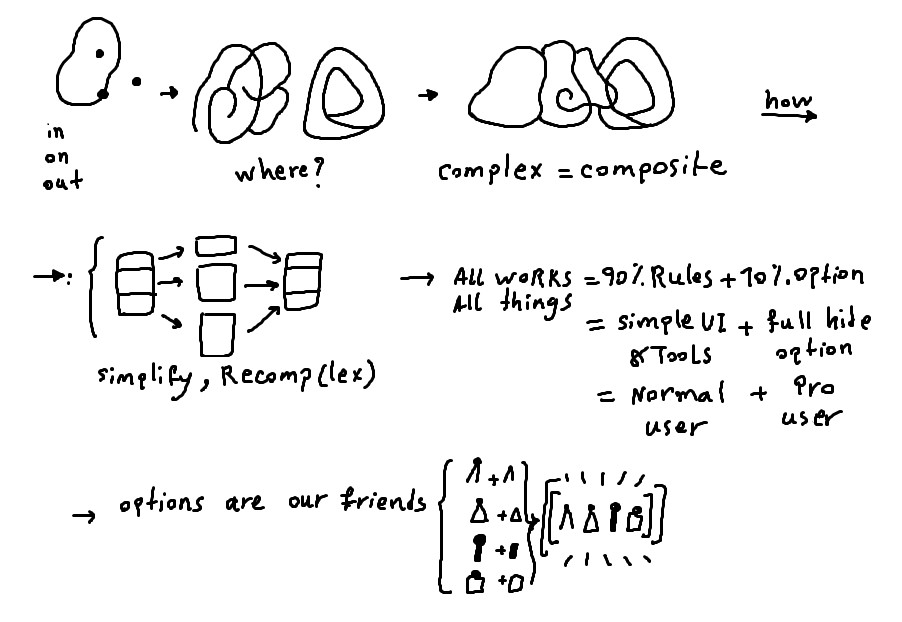 in
on
out
where?
complex = composite
how
simplify, Recomp(lex)
All works = 90% Rules + 10% option
All things
= simple UI + full hide
& Tools option
= Normal + Pro
user user
options are our friends